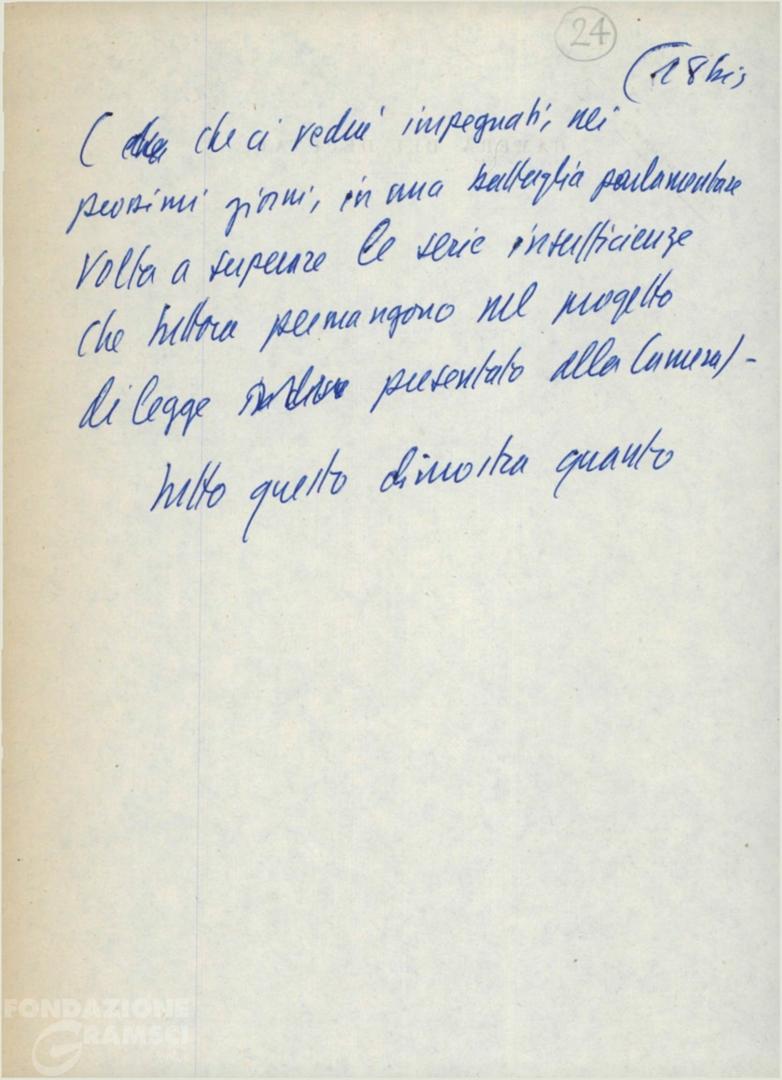 24
(18 bis
( che ci vedrà impegnati, nei
prossimi giorni, in una battaglia parlamentare
volta a superare le serie insufficienze
che tuttora permangono nel progetto
di legge presentato alla Camera) -
tutto questo dimostra quanto
FONDAZIONE
GRAMSCI